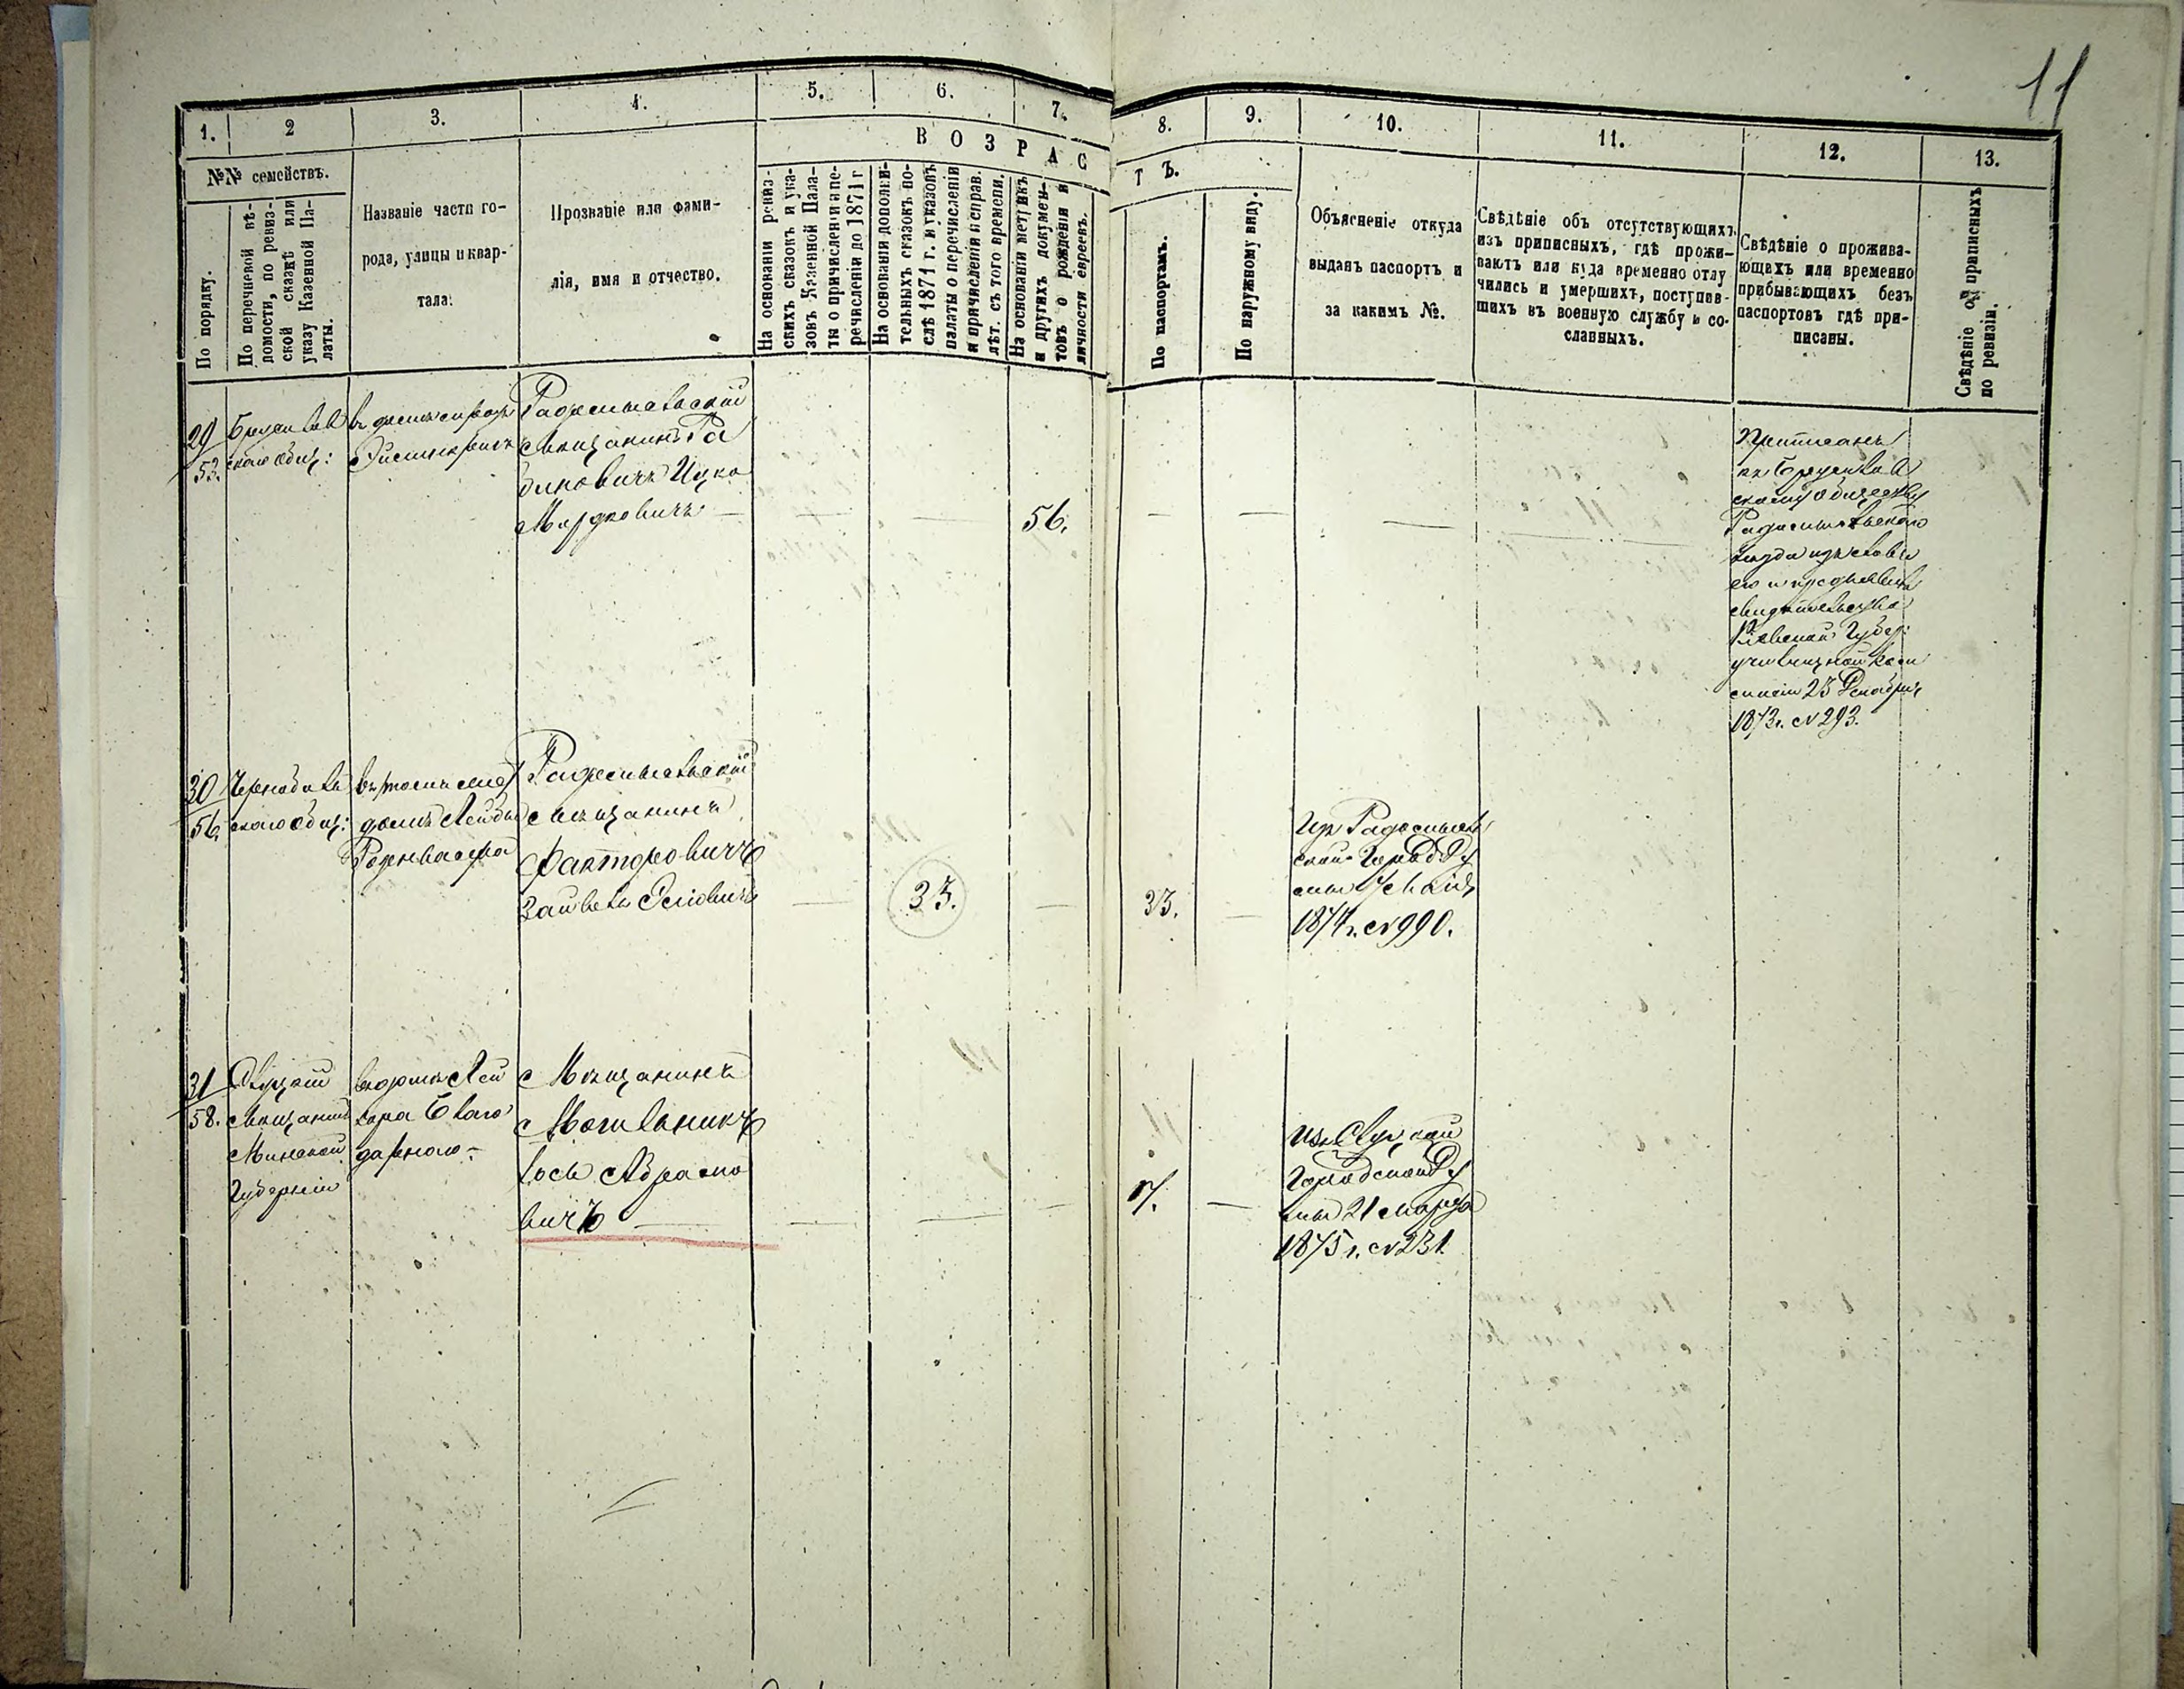 11
1.
2
3.
4.
5.
6.
7.
8.
9.
10.
11.
12.
13.
№№ семействъ.
В О З Р А С
Т Ъ.
По порядку.
По перечневой вѣ-
домости, по ревиз-
ской сказкѣ или
указу Казенной Па-
латы.
Названіе части го-
рода, улицы и квар-
тала.
Прозваніе или фами-
лія, имя и отчество.
На основаніи ревиз-
скихъ сказокъ и ука-
зовъ Казенной Пала-
ты о причисленіи и пе-
речисленіи до 1871 г
На основаніи дополни-
тельныхъ сказокъ по-
слѣ 1871 г. и указовъ
палаты о перечисленіи
и причисленіи и справ.
лѣт. съ того времени.
На основаніи метрикъ
и другихъ докумен-
товъ о рожденіи и
личности евреевъ.
По паспортамъ.
По наружному виду.
Объясненіе откуда
выданъ паспортъ и
за какимъ №.
Свѣдѣніе объ отсутствующихъ
изъ приписныхъ, гдѣ прожи-
ваютъ или куда временно отлу
чились и умершихъ, поступив-
шихъ въ военную службу и со-
сланныхъ.
Свѣдѣніе о прожива-
ющихъ или временно
прибывающихъ безъ
паспортовъ гдѣ при-
писаны.
Свѣдѣніе о приписныхъ
по ревизіи.
29
53.
скаго Общ:
Радомысльскій
Мѣщанинъ Ра
биновичъ Ицко
Мордковичъ —
56.
Приписанъ
скому обществу
Радомысльскаго
свидѣтельство
Кіевской Губер:
23 Декабря
1873 г. № 293.
30
56.
Чернобыль
скаго Общ:
домъ Лейбы
Радомысльскій
Мѣщанинъ
Факторовичъ
33.
33.
Изъ Радомысль
ской Город. Ду
мы
1874 г. № 990.
31
58.
Слуцкій
Мѣщанинъ
Минской
Губерніи
въ домѣ Лей
зора Благо
дарного
Мѣщанинъ
Могильникъ
Іось Абрамо
вичъ —
17.
Изъ Слуцкой
Городской Ду
мы 21 Марта
1875 г. № 231.